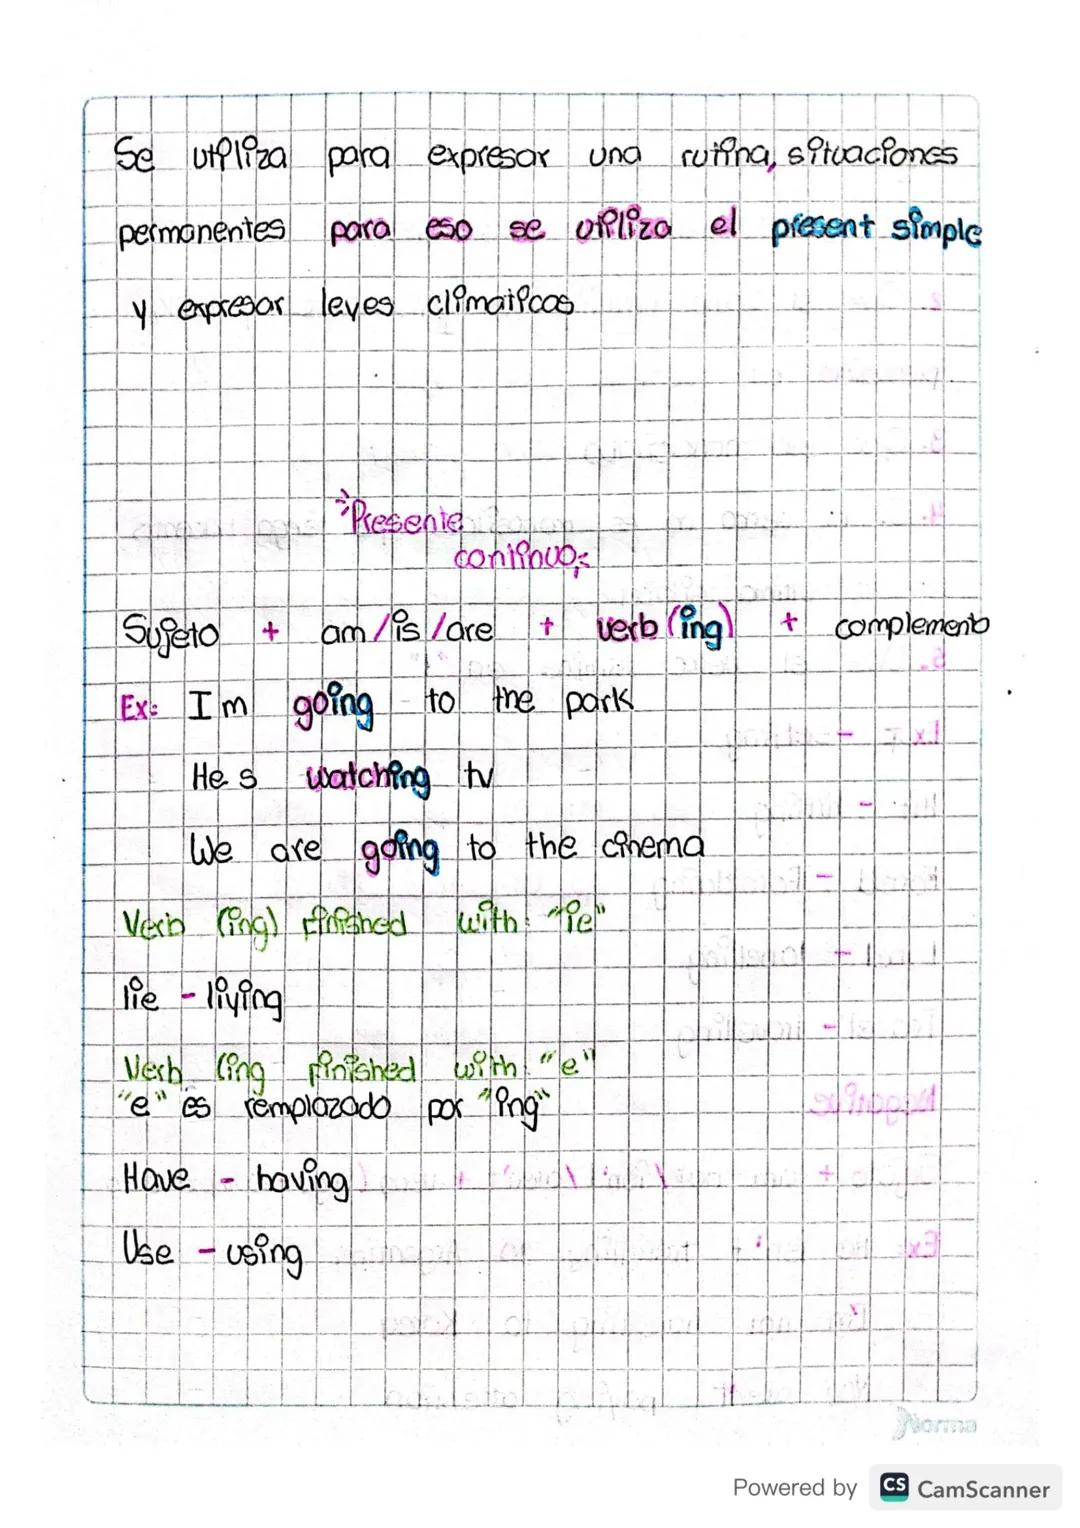 Se utiliza para expresar una rutina, situaciones
permanentes para eso se utiliza el present simple
y expresar leyes climaticas
Presente
continuo
Sujeto + am/is/are + verb (ing) + complemento
Ex: I m going to the park
He s watching tv
We are going to the cinema
Verb (ing) finished with "ie"
lie - liying
Verb (ing finished with "e"
"e" es remplazado por "ing"
Have - having
Use - using
Norma
Powered by CS CamScanner